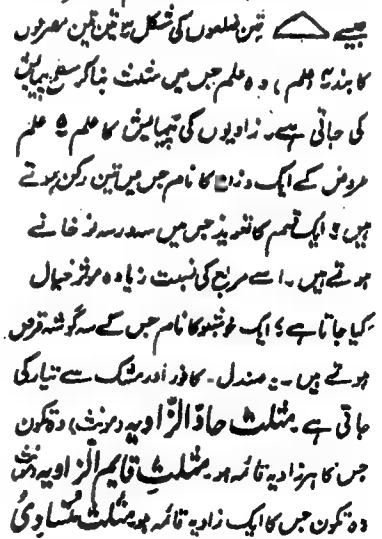 جیسے △ تین ضلعوں کی شکل ؛ تین تین مصرعوں
کا بند ؛ (علم) وہ علم جس میں مثلث بنا کر سطح پیمائش
کی جاتی ہے۔ زاویوں کی پیمائش کا علم ؛ علم
عروض کے ایک وزن کا نام جس میں تین رکن ہوتے
ہیں ؛ ایک قسم کا تعویذ جس میں سہ در سہ نو خانے
ہوتے ہیں۔ اسے مربع کی نسبت زیادہ موثر خیال
کیا جاتا ہے ؛ ایک خوشبو کا نام جس کے سہ گوشہ قرص
ہوتے ہیں۔ یہ صندل۔ کافور اور مشک سے تیار کی
جاتی ہے۔ مثلث حادّ الزّاویہ (مونث) وہ تکون
جس کا ہر زاویہ قائمہ ہو۔ مثلثِ قایم الزاویہ (مونث)
وہ تکون جس کا ایک زاویہ قائمہ ہو۔ مثلث متساویُ